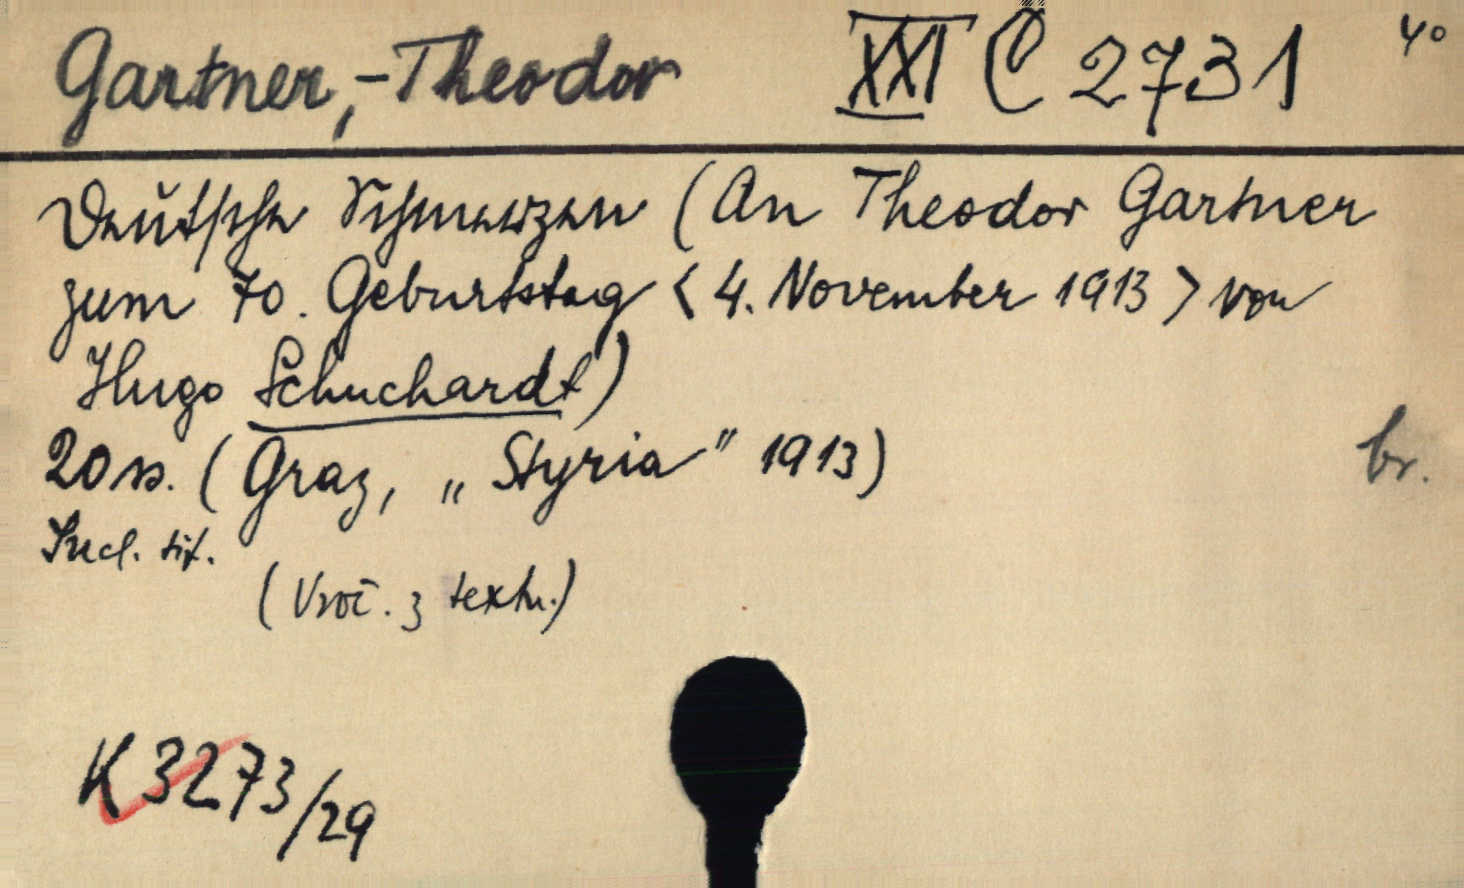 Gartner,-Theodor XXI C 2731 4°
Deutsche Schmerzen (An Theodor Gartner
zum 70. Geburtstag <4. November 1913> von
Hugo Schuchardt)
20 ss. (Graz, „Styria" 1913) br.
Incl. tit.
(Vroč. z textu.)
K 3273/29